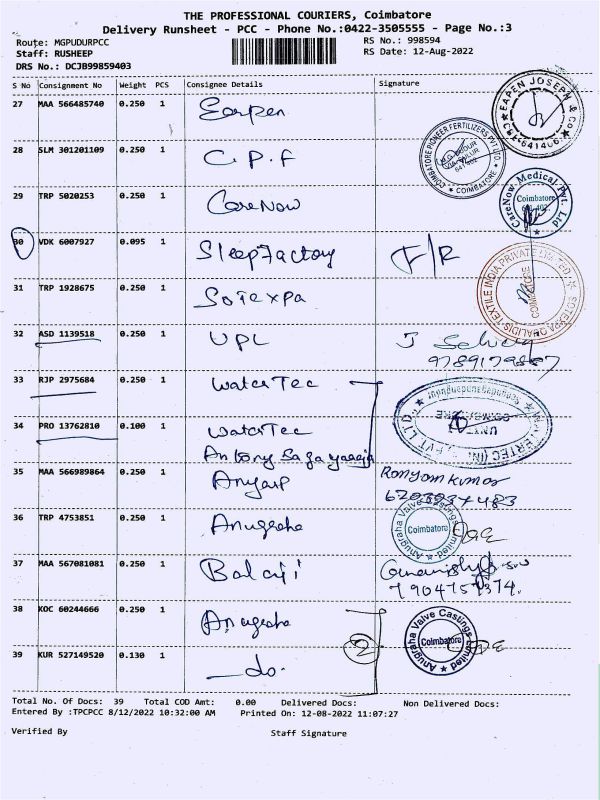 THE PROFESSIONAL COURIERS, Coimbatore
Delivery Runsheet - PCC - Phone No.:0422-3505555 - Page No.:3
Route: MGPUDURPCC RS No.: 998594
Staff: RUSHEEP RS Date: 12-Aug-2022
DRS No.: DCJB99859403
S No Consignment No Weight PCS Consignee Details Signature
27 MAA 566485740 0.250 1 Earpen
EAPEN JOSEPH & Co
641406
28 SLM 301201109 0.250 1 C.P.F
COIMBATORE PIONEER FERTILIZERS PVT. LTD.
COIMBATORE
29 TRP 5020253 0.250 1 CareNow
CareNow Medical Pvt. Ltd
Coimbatore
641 402
30 VDK 6007927 0.095 1 SleepFactory F/R
31 TRP 1928675 0.250 1 Sotexpa
SOTEXPA QUALIDIS TEXTILE INDIA PRIVATE LIMITED
COIMBATORE
32 ASD 1139518 0.250 1 UPL
33 RJP 2975684 0.250 1 WaterTec
34 PRO 13762810 0.100 1 WaterTec
WATERTEC (IND) PVT. LTD.
COIMBATORE
35 MAA 566989864 0.250 1
36 TRP 4753851 0.250 1 Anugraha
Anugraha Valve Castings Limited
Coimbatore
37 MAA 567081081 0.250 1 Balaji
38 KOC 60244666 0.250 1 Anugraha
2
Anugraha Valve Castings Limited
Coimbatore
39 KUR 527149520 0.130 1 —do.
Total No. Of Docs: 39 Total COD Amt: 0.00 Delivered Docs: Non Delivered Docs:
Entered By :TPCPCC 8/12/2022 10:32:00 AM Printed On: 12-08-2022 11:07:27
Verified By Staff Signature